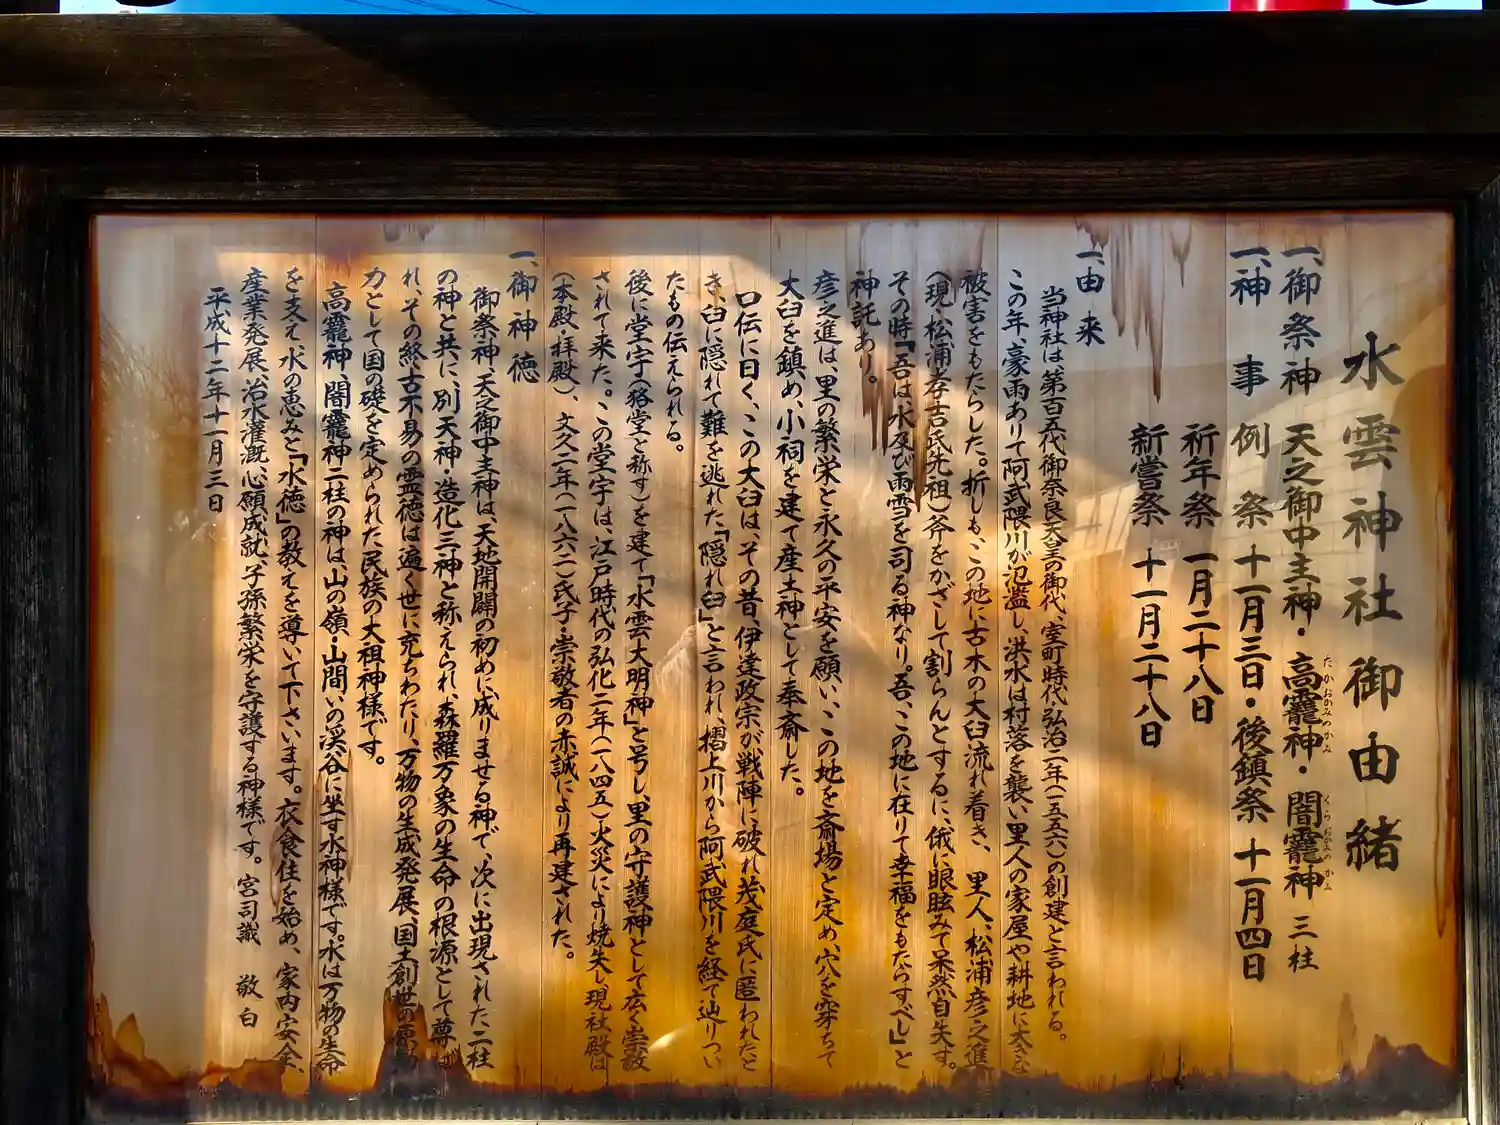 水雲神社御由緒
一、御祭神　天之御中主神・高龗神・闇龗神 三柱
たかおかみのかみ　くらおかみのかみ
一、神事　例祭 十一月三日・後鎮祭 十一月四日
祈年祭 一月二十八日
新嘗祭 十一月二十八日
一、由来
当神社は第百五代御奈良天皇の御代、室町時代弘治二年(一五五六)の創建と言われる。
この年、豪雨ありて阿武隈川が氾濫し、洪水は村落を襲い里人の家屋や耕地に大きな
被害をもたらした。折しも、この地に古木の大臼流れ着き、里人、松浦彦之進
(現・松浦孝吉氏先祖)斧をかざして割らんとするに、俄に眼眩みて呆然自失す。
その時「吾は水及び雨雪を司る神なり。吾、この地に在りて幸福をもたらすべし」と
神託あり。
彦之進は、里の繁栄と永久の平安を願い、この地を斎場と定め、穴を穿ちて
大臼を鎮め、小祠を建て産土神として奉斎した。
口伝に曰く、この大臼は、その昔、伊達政宗が戦陣に破れ茂庭氏に匿われたと
き、臼に隠れて難を逃れた「隠れ臼」と言われ、摺上川から阿武隈川を経て辿りつい
たもの伝えられる。
後に堂宇(堂と称す)を建て「水雲大明神」と号し、里の守護神として広く崇敬
されて来た。この堂宇は、江戸時代の弘化二年(一八四五)火災により焼失し、現社殿は
(本殿・拝殿)、文久二年(一八六二)氏子・崇敬者の赤誠により再建された。
一、御神徳
御祭神、天之御中主神は、天地開闢の初めに成りませる神で、次に出現された二柱
の神と共に、別天神・造化三神と称えられ、森羅万象の生命の根源として尊ば
れ、その終古不易の霊徳は遍く世に充ちわたり、万物の生成発展、国土創世の原動
力として国の礎を定められた民族の大祖神様です。
高龗神・闇龗神二柱の神は、山の嶺・山間いの渓谷に坐す水神様です。水は万物の生命
を支え、水の恵みと「水徳」の教えを導いて下さいます。衣食住を始め、家内安全、
産業発展、治水灌漑、心願成就、子孫繁栄を守護する神様です。宮司識　敬白
平成十二年十一月三日